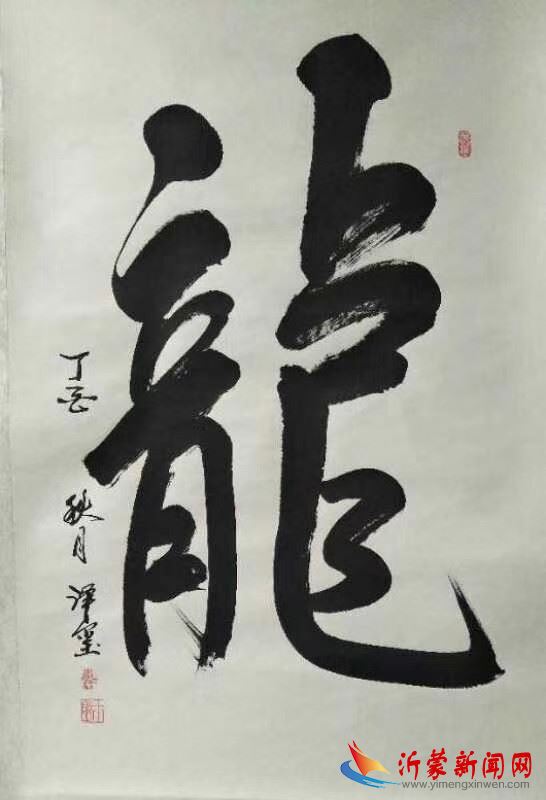 龍
丁酉
秋月
沂蒙新闻网
www.yimengxinwen.com